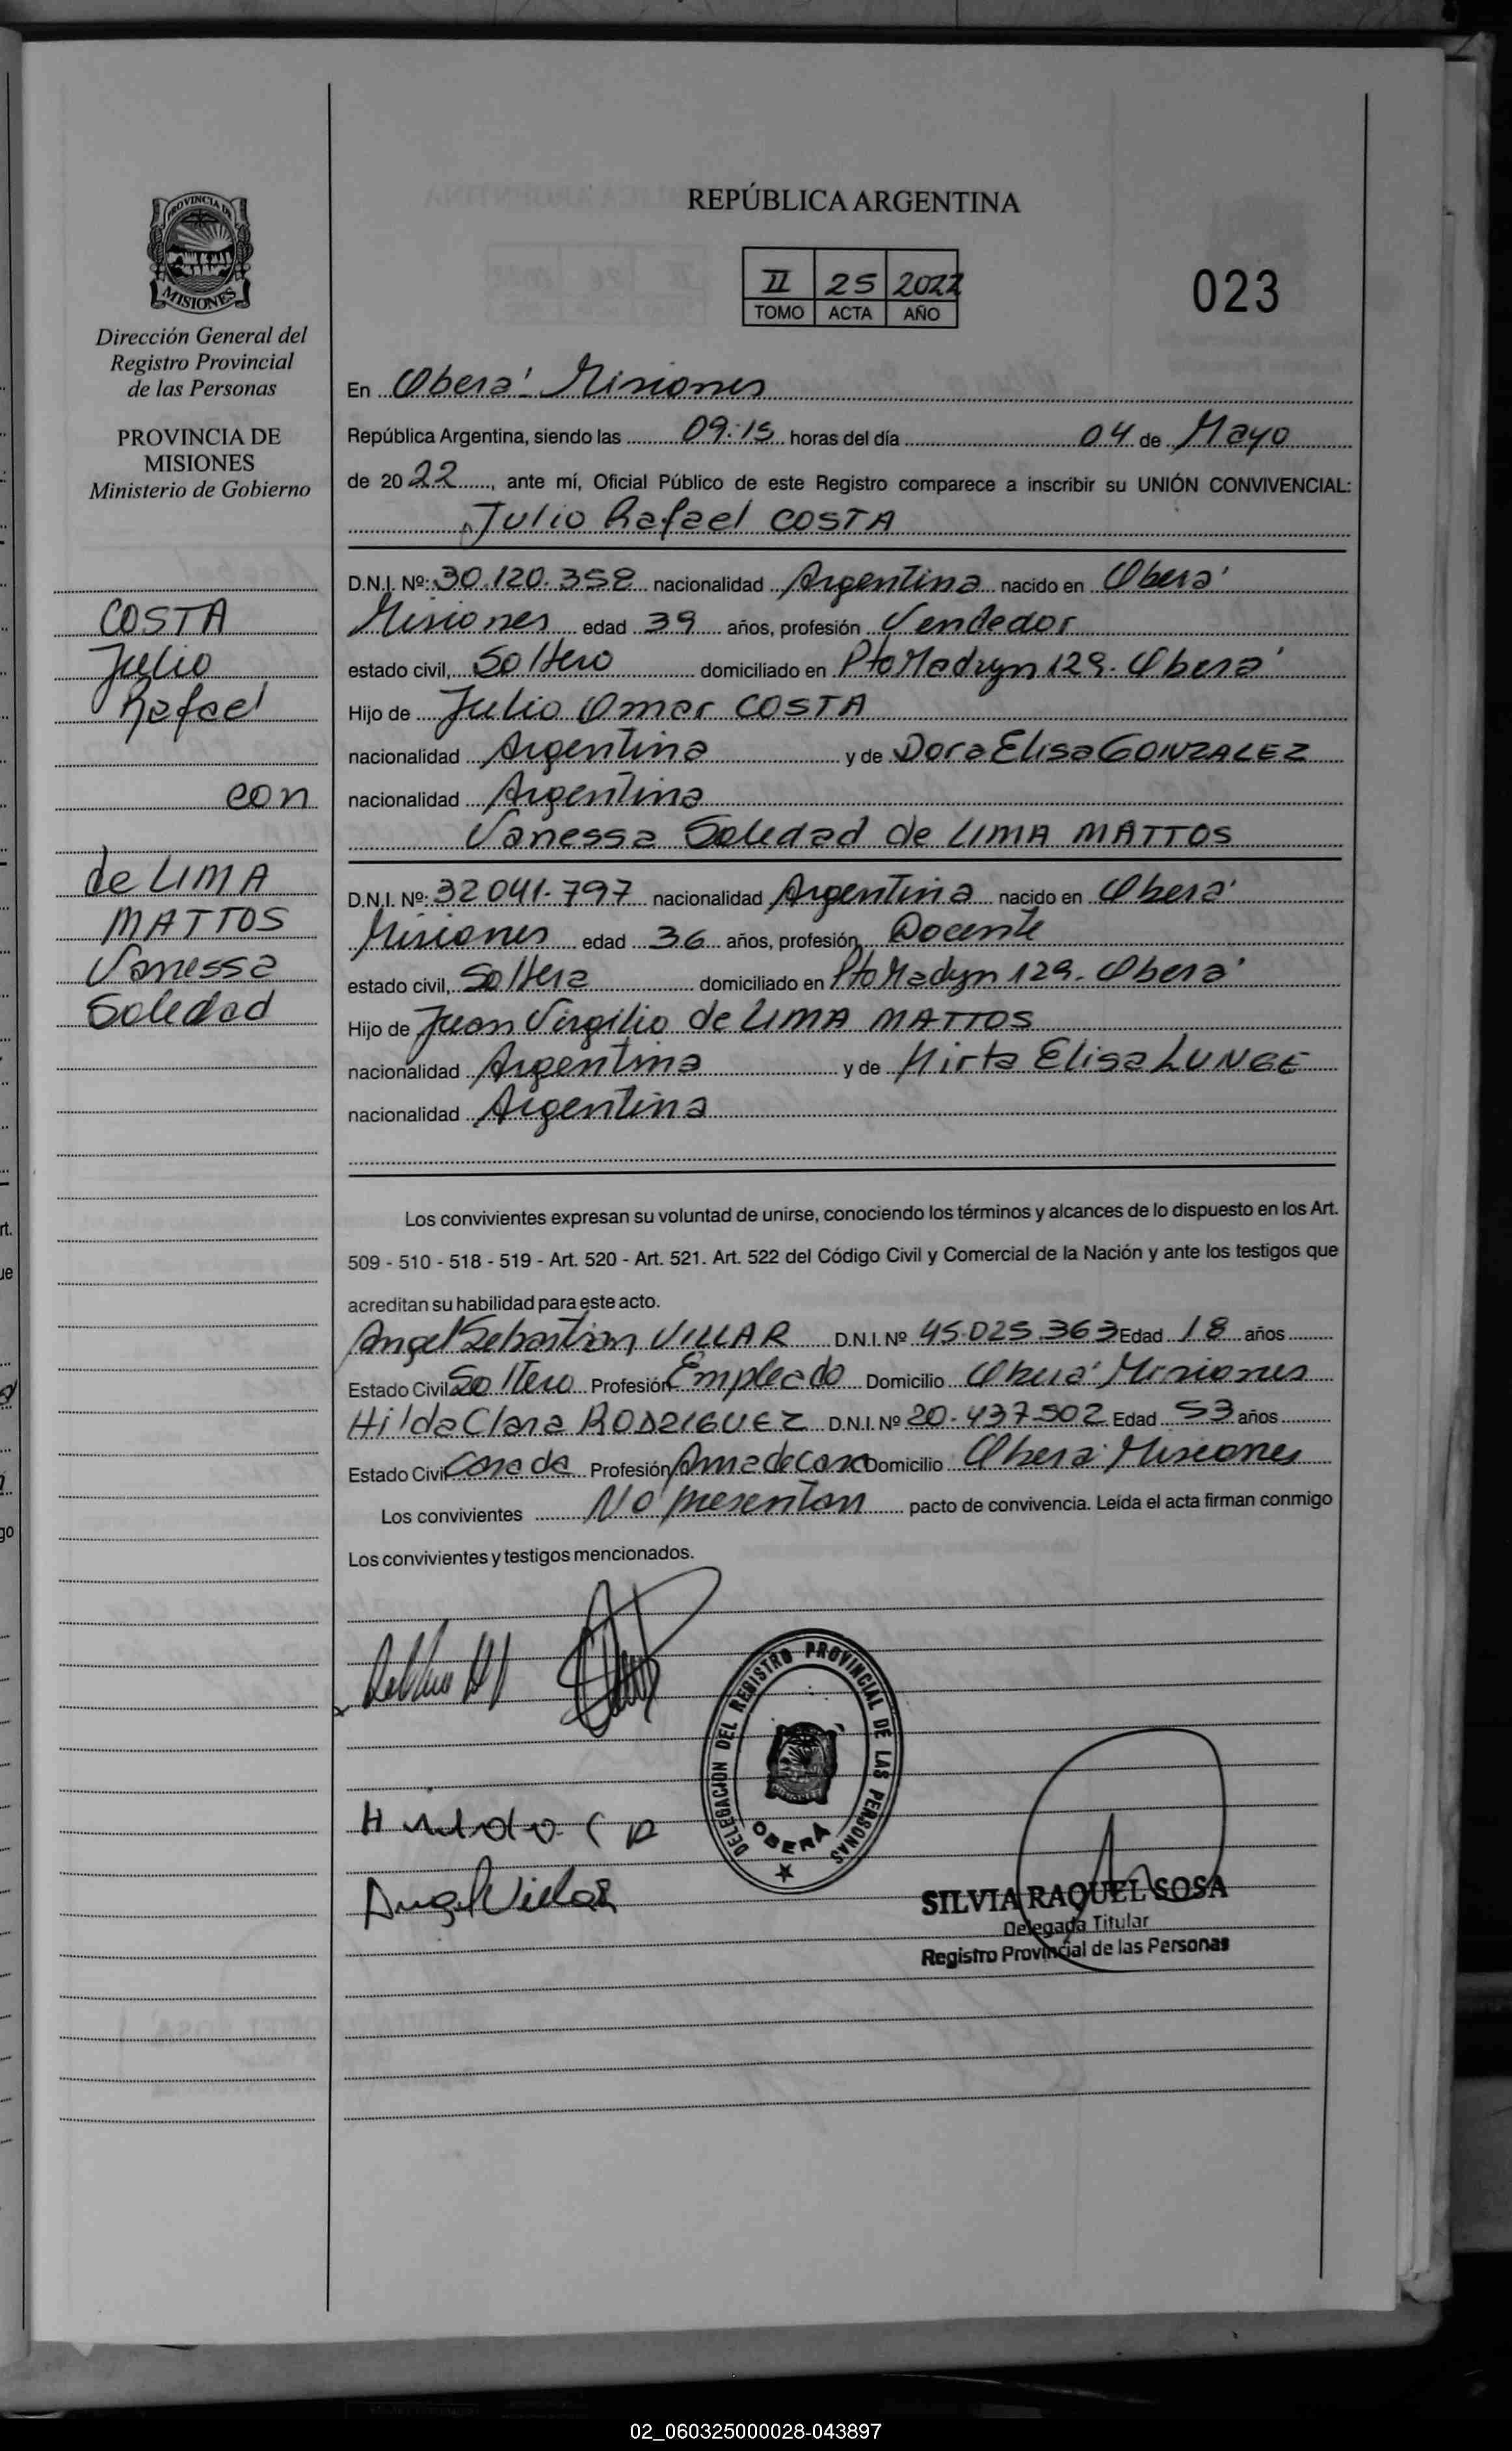 PROVINCIA DE
MISIONES
Dirección General del
Registro Provincial
de las Personas
PROVINCIA DE
MISIONES
Ministerio de Gobierno
COSTA
Julio
Rafael
con
de LIMA
MATTOS
Vanessa
Soledad
REPÚBLICA ARGENTINA
II 25 2022
TOMO ACTA AÑO
023
En Oberá Misiones
República Argentina, siendo las 09:15 horas del día 04 de Mayo
de 2022, ante mí, Oficial Público de este Registro comparece a inscribir su UNIÓN CONVIVENCIAL:
Julio Rafael COSTA
D.N.I. Nº: 30.120.358 nacionalidad Argentina nacido en Oberá
Misiones edad 39 años, profesión Vendedor
estado civil, Soltero domiciliado en Pto Madryn 129. Oberá
Hijo de Julio Omar COSTA
nacionalidad Argentina y de Dora Elisa GONZALEZ
nacionalidad Argentina
Vanessa Soledad de LIMA MATTOS
D.N.I. Nº: 32041.797 nacionalidad Argentina nacido en Oberá
Misiones edad 36 años, profesión Docente
estado civil, Soltera domiciliado en Pto Madyn 129. Oberá
Hijo de Juan Virgilio de LIMA MATTOS
nacionalidad Argentina y de Mirta Elisa LUNGE
nacionalidad Argentina
Los convivientes expresan su voluntad de unirse, conociendo los términos y alcances de lo dispuesto en los Art.
509 - 510 - 518 - 519 - Art. 520 - Art. 521. Art. 522 del Código Civil y Comercial de la Nación y ante los testigos que
acreditan su habilidad para este acto.
Angel Sebastian VILLAR D.N.I. Nº 45.025.363 Edad 18 años
Estado Civil Soltero Profesión Empleado Domicilio Oberá Misiones
Hilda Clara RODRIGUEZ D.N.I. Nº 20.437.502 Edad 53 años
Estado Civil Casada Profesión Ama de casa Domicilio Oberá Misiones
Los convivientes No presentan pacto de convivencia. Leída el acta firman conmigo
Los convivientes y testigos mencionados.
DELEGACION DEL REGISTRO PROVINCIAL DE LAS PERSONAS
OBERÁ
Angel Villar
SILVIA RAQUEL SOSA
Delegada Titular
Registro Provincial de las Personas
02_060325000028-043897